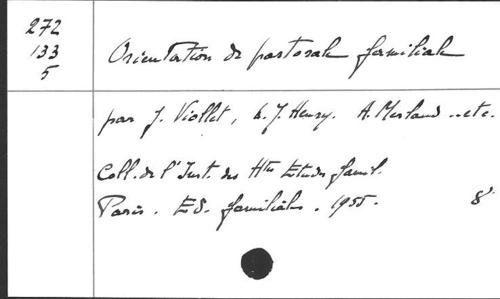 272
133
5
Orientation de pastorale familiale
par J. Viollet, A. J. Henry. A. Merlaud .. etc.
Coll. de l'Inst. des Htes Etudes famil.
Paris. Ed. familiales. 1955. 8°